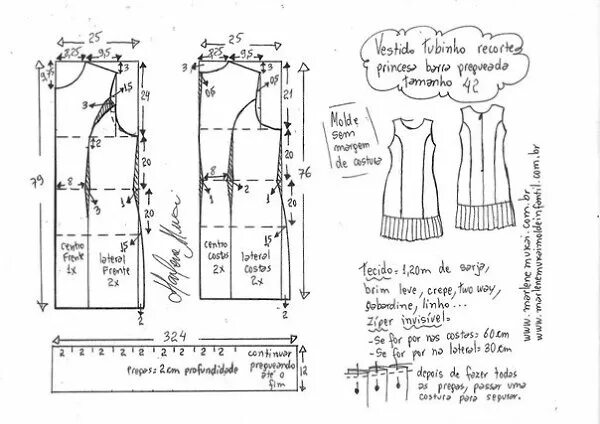 25
8,25
9,5
9,75
3
1,5
24
3
2
79
20
8
3
1
20
15
centro
Frente
1x
lateral
Frente
2x
2
25
8,25
9,5
3
3
0,5
0,5
21
20
8
2
1
76
20
15
centro
costas
2x
lateral
Costas
2x
2
Marlene Mukai
324
2 2 2 2 2 2 2 2 2 2
continuar
pregueando
até o
fim
Pregas = 2cm profundidade
12
Vestido tubinho recorte
princesa barra pregueada
tamanho 42
Molde
sem
margem
de costura
Tecido = 1,20m de sarja,
brim leve, crepe, two way,
gabardine, linho...
Zíper invisível =
- Se for por nas costas = 60cm
- Se for por na lateral = 30cm
depois de fazer todas
as pregas, passar uma
costura para segurar.
www.marlenemukai.com.br
www.marlenemukaimoldeinfantil.com.br